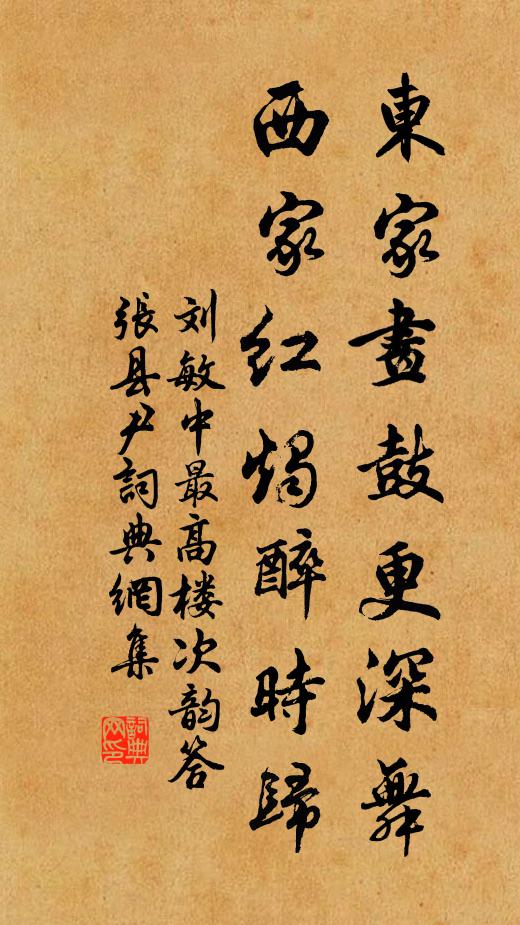 東家畫鼓更深舞
西家紅燭醉時歸
刘敏中最高楼次韵答
張县尹詞典網集
詞典网印